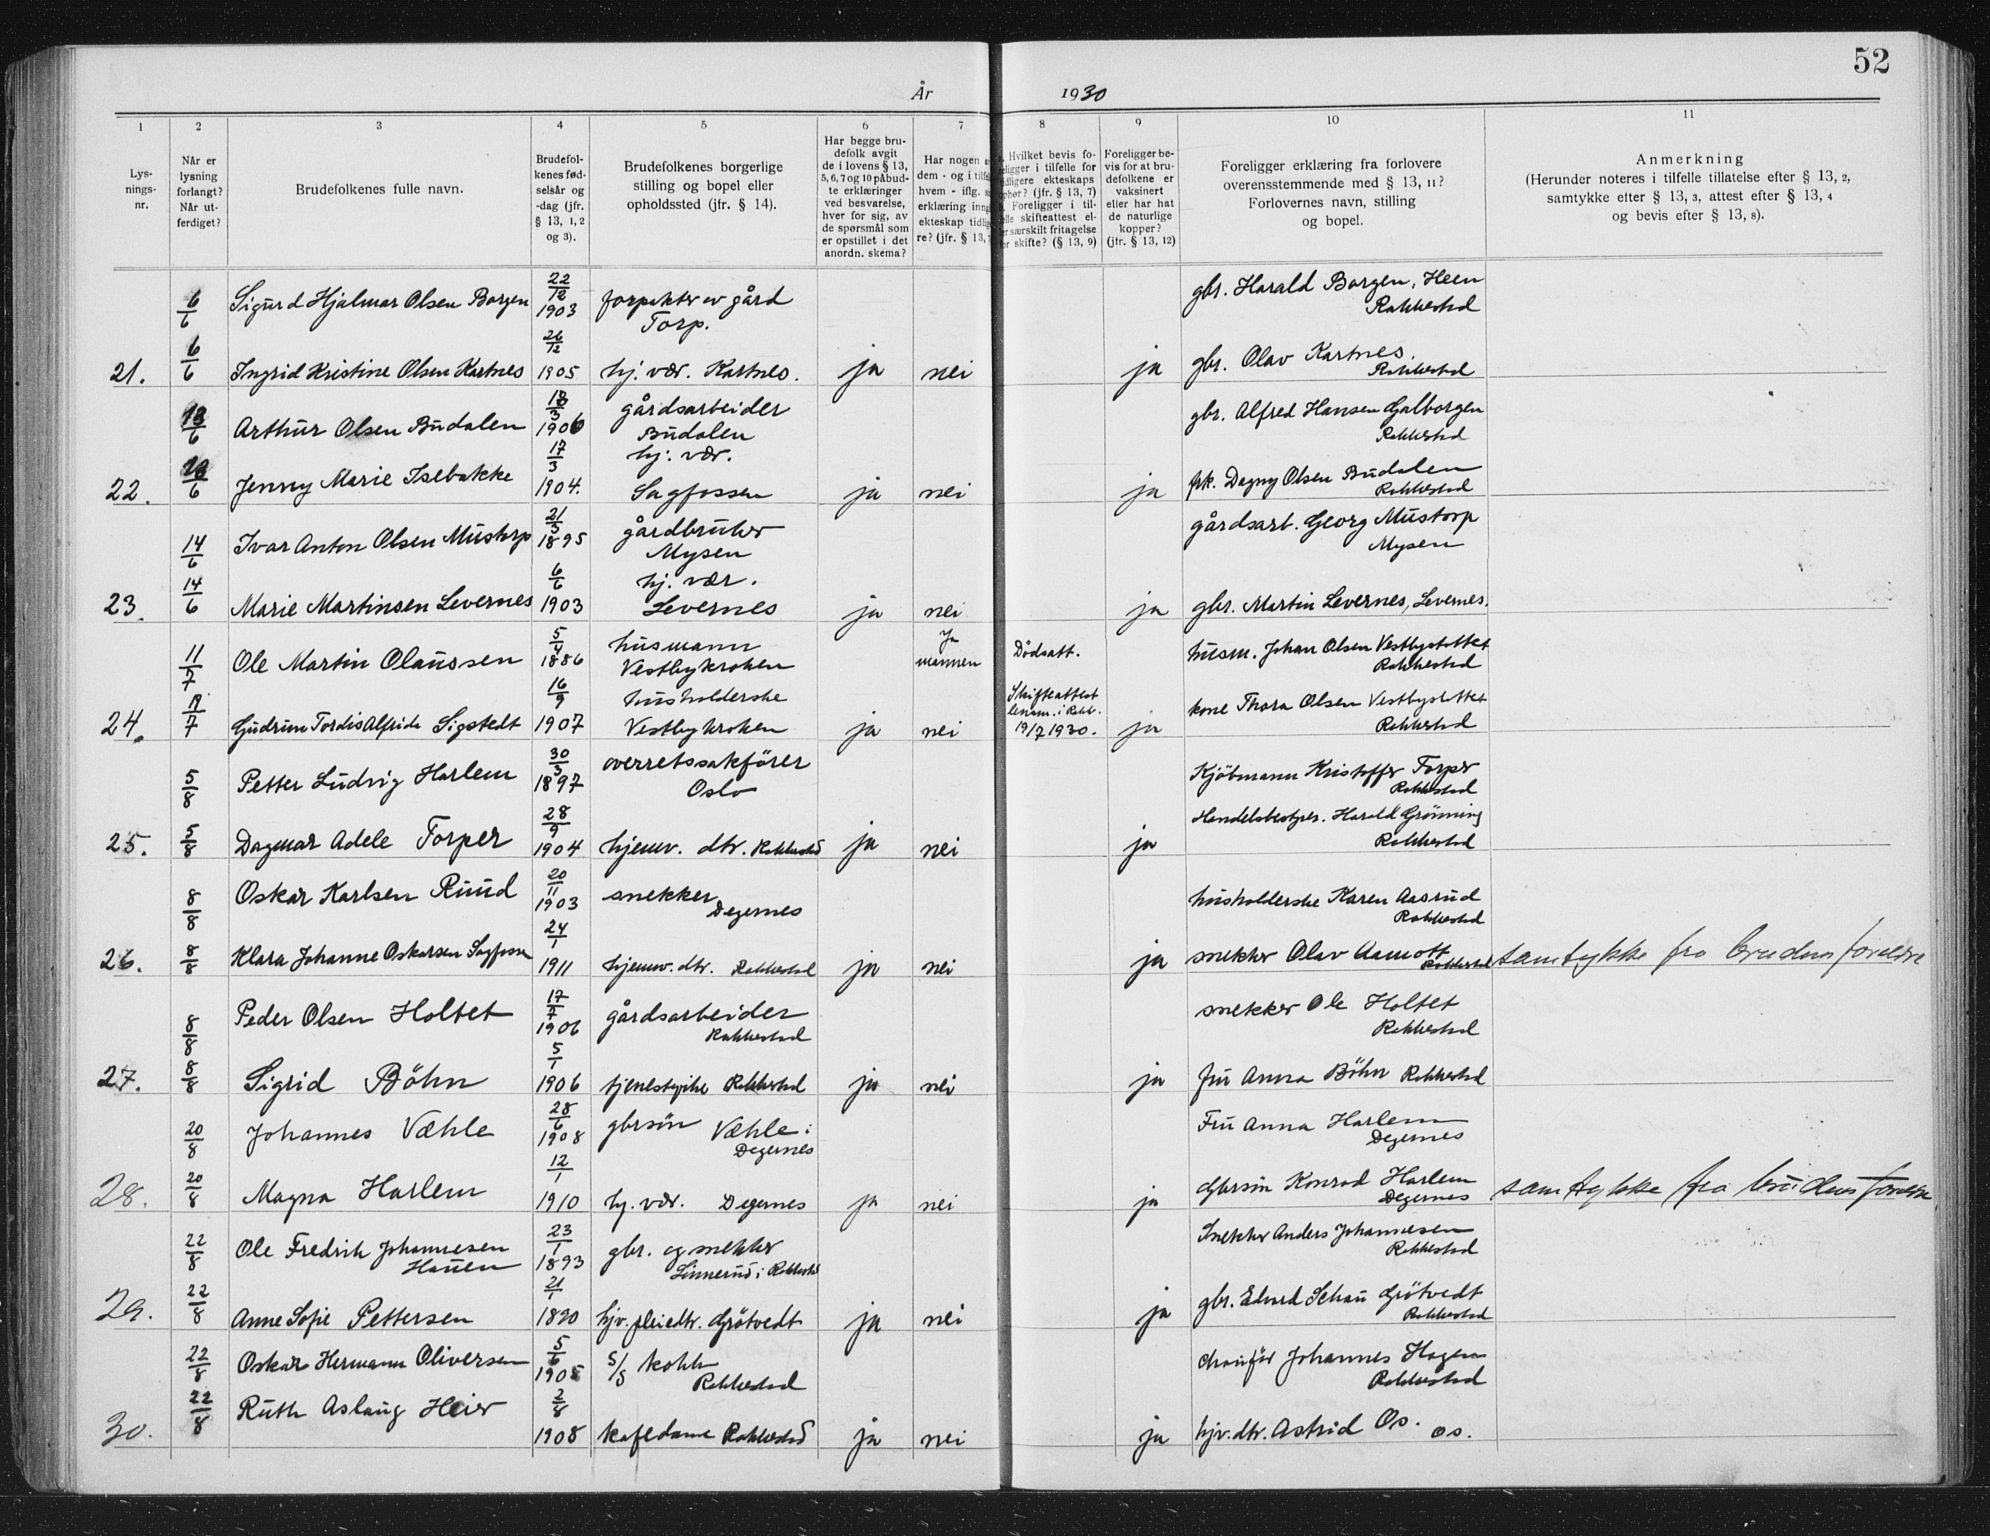 52
År 1930
1 2 3 4 5 6 7 8 9 10 11
Lys-
nings-
nr.
Når er
lysning
forlangt?
Når ut-
ferdiget?
Brudefolkenes fulle navn.
Brudefol-
kenes fød-
selsår og
-dag (jfr.
§ 13, 1, 2
og 3).
Brudefolkenes borgerlige
stilling og bopel eller
opholdssted (jfr. § 14).
Har begge bru-
defolk avgit
de i lovens § 13,
5, 6, 7 og 10 påbud-
te erklæringer
ved besvarelse,
hver for sig, av
de spørsmål som
er opstillet i det
anordn. skema?
Har nogen
dem - og i tilfe
hvem - iflg.
erklæring inng
ekteskap tidlig
re? (jfr. § 13,
Hvilket bevis fo-
religger i tilfelle for
tidligere ekteskaps
ophør? (jfr. § 13, 7)
Foreligger i til-
elle skifteattest el-
er særskilt fritagelse
or skifte? (§ 13, 9)
Foreligger be-
vis for at bru-
defolkene er
vaksinert
eller har hat
de naturlige
kopper?
(jfr. § 13, 12)
Foreligger erklæring fra forlovere
overensstemmende med § 13, 11?
Forlovernes navn, stilling
og bopel.
Anmerkning
(Herunder noteres i tilfelle tillatelse efter § 13, 2,
samtykke efter § 13, 3, attest efter § 13, 4
og bevis efter § 13, 8).
6/6 Sigurd Hjalmar Olsen Borgen 22/12 1903 forpakter av gård Torp. gbr. Harald Borgen, Heen Rakkestad
21. 6/6 Ingrid Kristine Olsen Kartnes 26/12 1905 hj. vær. Kartnes. ja nei ja gbr. Olav Kartnes. Rakkestad
13/6 Arthur Olsen Budalen 18/3 1906 gårdsarbeider Budalen gbr. Alfred Hansen Galborgen Rakkestad
22. /6 Jenny Marie Isebakke 17/3 1904. hj. vær. Sagfossen ja nei ja frk. Dagny Olsen Budalen Rakkestad
14/6 Ivar Anton Olsen Mustorp 21/3 1895 gårdbruker Mysen gårdsarb. Georg Mustorp Mysen
23. 14/6 Marie Martinsen Levernes 6/6 1903 hj. vær. Levernes ja nei ja gbr. Martin Levernes, Levernes.
11/7 Ole Martin Olaussen 5/4 1886 husmann Vestbykroken Ja mannen Dødsatt. husm. Johan Olsen Vestbystøttet Rakkestad
24. /7 Gudrun Tordis Alfride Sigstedt 16/9 1907 husholderske Vestbykroken ja nei Skifteattest i Rakk. 19/7 1930. ja kone Thora Olsen Vestbystøttet Rakkestad
5/8 Petter Ludvig Harlem 30/3 1897 overretssakfører Oslo Kjöbmann Kristoffer Torper Rakkestad
25. 5/8 Dagmar Adele Torper 28/9 1904 hjemv. dtr. Rakkestad ja nei ja Handelsbestyrer. Harald Grönning Rakkestad
8/8 Oskar Karlsen Ruud 20/11 1903 snekker Degernes husholderske Karen Aasrud Rakkestad
26. 8/8 Klara Johanne Oskarsen Sagfossen 24/1 1911 hjemv. dtr. Rakkestad ja nei ja snekker Olav Aamott Rakkestad samtykke fra brudens foreldre
8/8 Peder Olsen Holtet 17/7 1906 gårdsarbeider Rakkestad snekker Ole Holtet Rakkestad
27. 8/8 Sigrid Böhn 5/1 1906 tjenestepike Rakkestad ja nei ja fru Anna Böhn Rakkestad
20/8 Johannes Væhle 28/6 1908 gbrsön Væhle i Degernes Fru Anna Harlem Degernes
28. 20/8 Magna Harlem 12/1 1910 hj. vær. Degernes ja nei ja Gbrsön Konrad Harlem Degernes samtykke fra brudens foreldre
22/8 Ole Fredrik Johannesen Hauen 23/1 1893 gbr. og snekker Linnerud i Rakkestad Snekker Anders Johannesen Rakkestad
29. 22/8 Anne Sofie Pettersen 21/1 1890 hjv. pleiedtr. Grötvedt ja nei ja gbr. Edvard Schau Grötvedt Rakkestad
22/8 Oskar Hermann Oliversen 5/6 1905 s/s kokk Rakkestad chauför Johannes Hagen Rakkestad
30. 22/8 Ruth Aslaug Heier 2/8 1908 kafedame Rakkestad ja nei ja hjv. dtr. Astrid Os. Os.